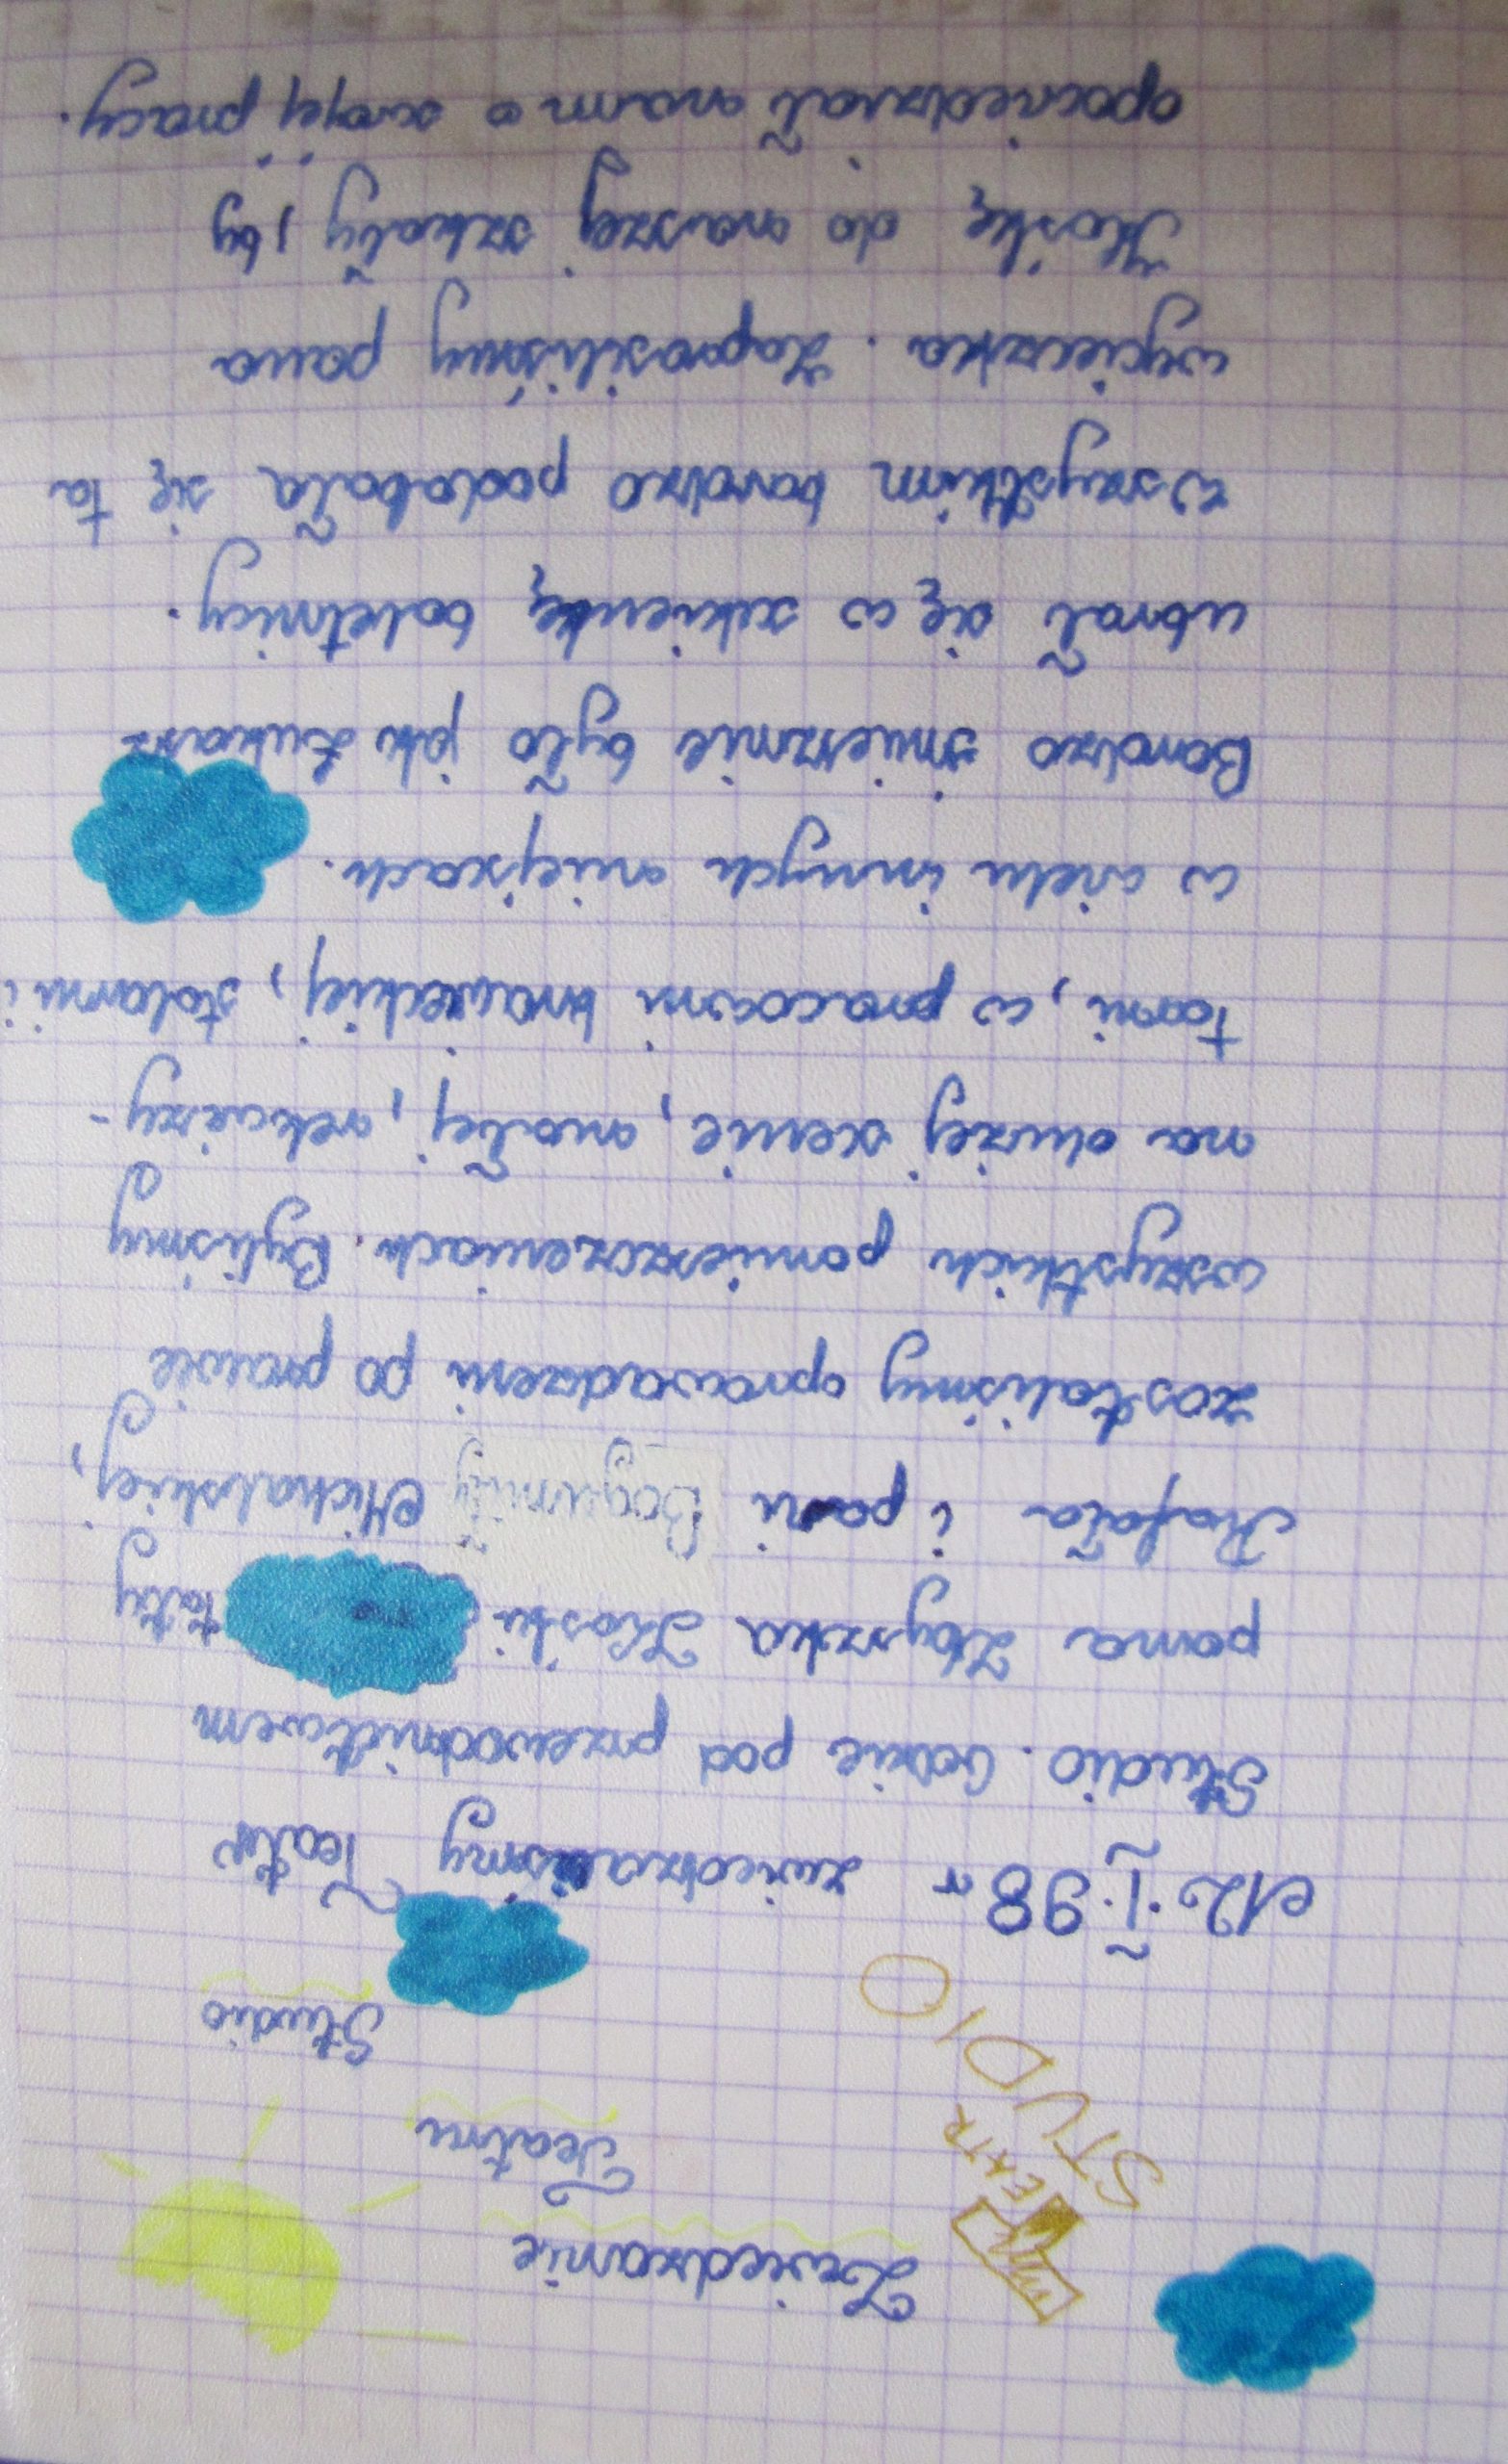 Zwiedzanie
Teatru
Studio
TEATR
STUDIO
12.I.98r zwiedzaliśmy Teatr
Studio. Gdzie pod przewodnictwem
pana Zbyszka Koski taty
Rafała i pani Bogumiły Michalskiej,
zostaliśmy oprowadzeni po prawie
wszystkich pomieszczeniach. Byliśmy
na dużej scenie, małej, rekwizy-
torni, w pracowni krawieckiej, stolarni i
w wielu innych miejscach.
Bardzo śmiesznie było jak Łukasz
ubrał się w sukienkę baletnicy.
Wszystkim bardzo podobała się ta
wycieczka. Zaprosiliśmy pana
Koskę do naszej szkoły, by
opowiedział nam o swojej pracy.